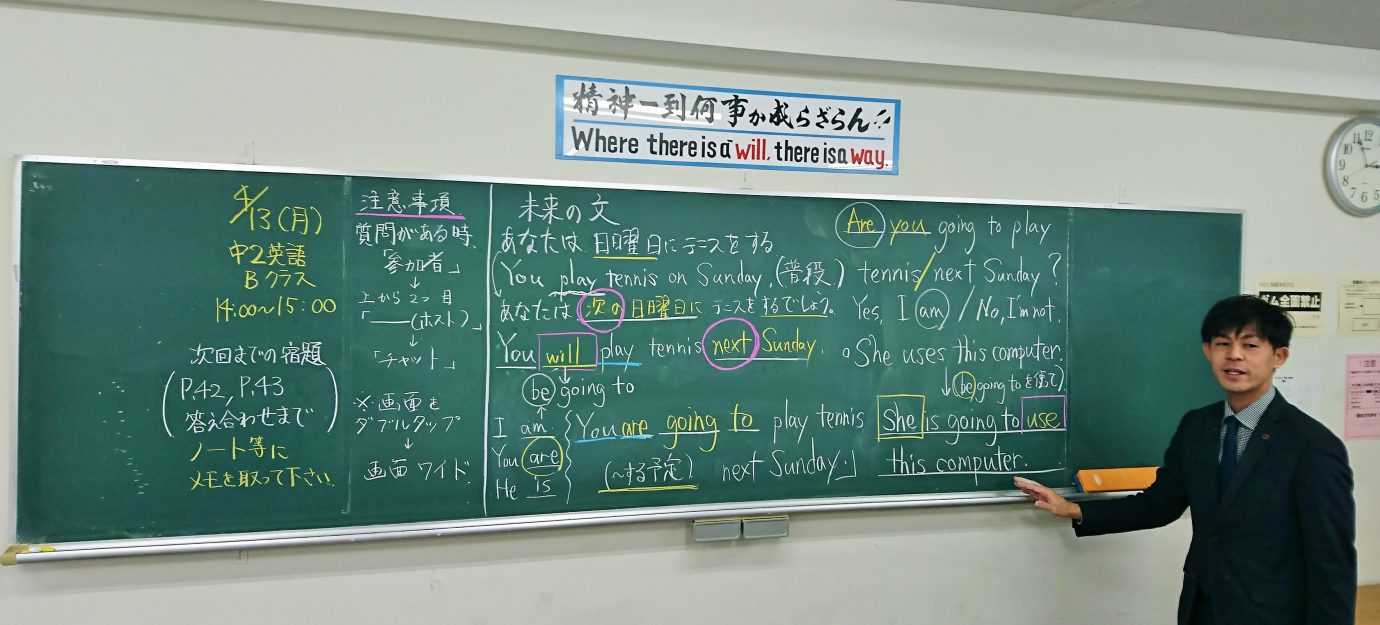 精神一到何事か成らざらん!!
Where there is a will, there is a way.
4/13(月)
中2英語
Bクラス
14:00〜15:00
次回までの宿題
(P.42, P.43
答え合わせまで)
ノート等に
メモを取って下さい
注意事項
質問がある時、
「参加者」
↓
上から2つ目
「――(ホスト)」
↓
「チャット」
※画面を
ダブルタップ
↓
画面ワイド
未来の文
あなたは日曜日にテニスをする
You play tennis on Sunday.(普段)
あなたは次の日曜日にテニスをするでしょう。
You will play tennis next Sunday.
be going to
I am
You are
He is
You are going to play tennis
(〜する予定) next Sunday.
Are you going to play
tennis/next Sunday?
Yes, I am / No, I'm not.
She uses this computer.
↓ (be going toを使て)
She is going to use
this computer.
ゲーム企画禁止
注意
12
11
10
9
8
7
6
5